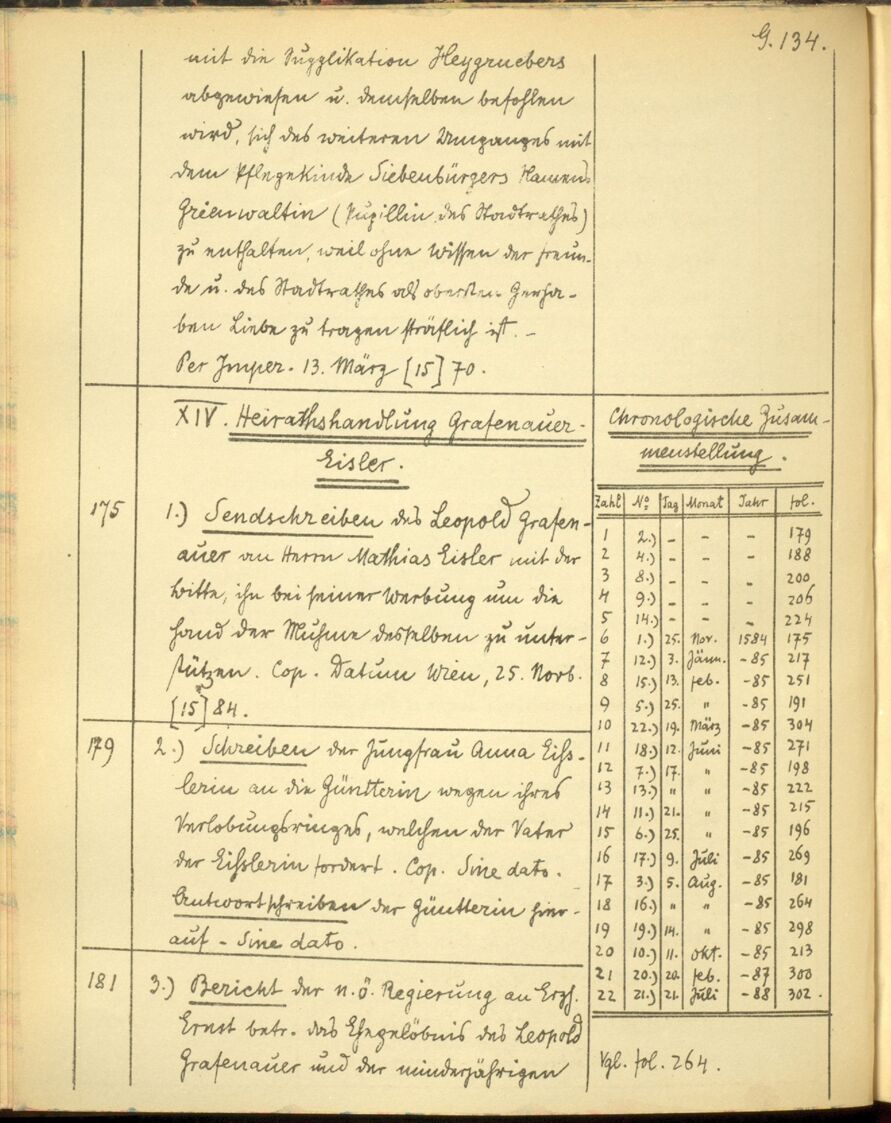 G. 134.
mit die Supplikation Heygruebers
abgewiesen u. demselben befohlen
wird, sich des weiteren Umganges mit
dem Pflegekinde Siebenbürgers Namens
Grienwaltin (Pupillin des Stadtrathes)
zu enthalten, weil ohne Wissen der Freun-
de u. des Stadtrathes als obersten Gerha-
ben Liebe zu tragen sträflich ist. –
Per Imper. 13. März [15]70.
XIV. Heirathshandlung Grafenauer-
Eisler.
175
1.) Sendschreiben des Leopold Grafen-
auer an Herrn Mathias Eisler mit der
Bitte, ihn bei seiner Werbung um die
Hand der Muhme desselben zu unter-
stützen. Cop. Datum Wien, 25. Novb.
[15]84.
179
2.) Schreiben der Jungfrau Anna Eiss-
lerin an die Güntterin wegen ihres
Verlobungsringes, welchen der Vater
der Eisslerin fordert. Cop. Sine dato.
Antwortschreiben der Güntterin hier-
auf – Sine dato.
181
3.) Bericht der n.ö. Regierung an Erzh.
Ernst betr. das Ehegelöbnis des Leopold
Grafenauer und der minderjährigen
Chronologische Zusam-
menstellung.
Zahl No. Tag Monat Jahr fol.
1 2.) – – – 179
2 4.) – – – 188
3 8.) – – – 200
4 9.) – – – 206
5 14.) – – – 224
6 1.) 25. Nov. 1584 175
7 12.) 3. Jänn. -85 217
8 15.) 13. Feb. -85 251
9 5.) 25. " -85 191
10 22.) 19. März -85 304
11 18.) 12. Juni -85 271
12 7.) 17. " -85 198
13 13.) " " -85 222
14 11.) 21. " -85 215
15 6.) 25. " -85 196
16 17.) 9. Juli -85 269
17 3.) 5. Aug. -85 181
18 16.) " " -85 264
19 19.) 14. " -85 298
20 10.) 11. Okt. -85 213
21 20.) 20. Feb. -87 300
22 21.) 21. Juli -88 302.
Vgl. fol. 264.